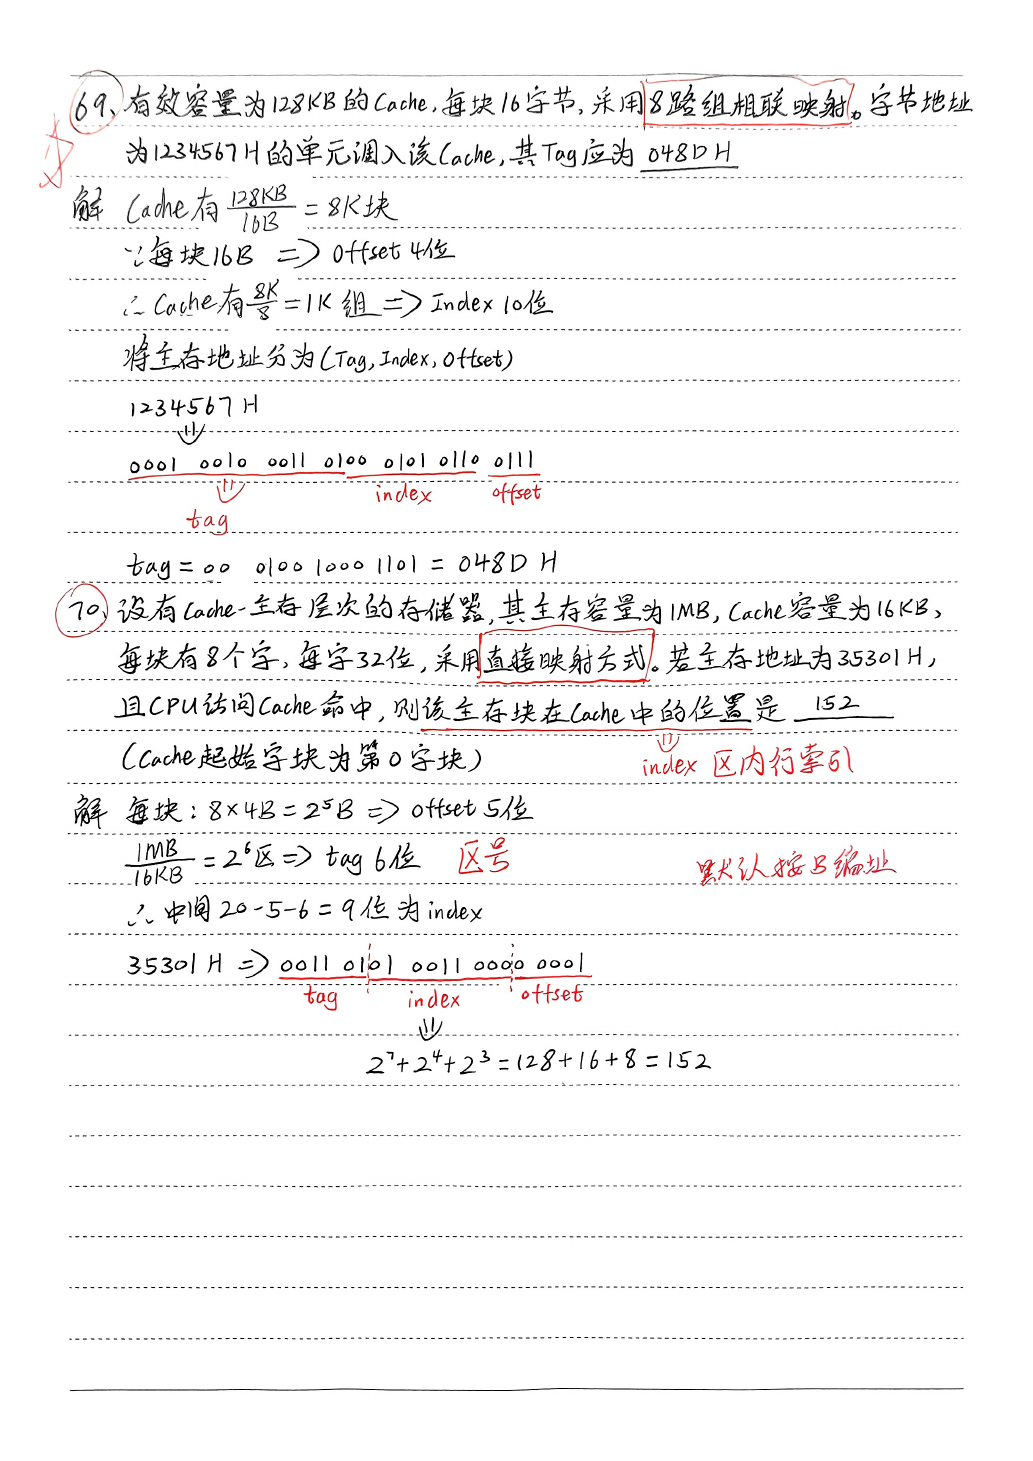 69、有效容量为128KB的Cache,每块16字节,采用8路组相联映射。字节地址
为1234567H的单元调入该Cache,其Tag应为 048DH
解 Cache有128KB/16B=8K块
∵每块16B => Offset 4位
∴Cache有8K/8=1K组 => Index 10位
将主存地址分为(Tag,Index,Offset)
1234567H
0001 0010 0011 0100 0101 0110 0111
index offset
tag
tag=00 0100 1000 1101 = 048D H
70、设有Cache-主存层次的存储器,其主存容量为1MB,Cache容量为16KB,
每块有8个字,每字32位,采用直接映射方式。若主存地址为35301H,
且CPU访问Cache命中,则该主存块在Cache中的位置是 152
(Cache起始字块为第0字块)
index 区内行索引
解 每块:8×4B=2⁵B => offset 5位
1MB/16KB=2⁶区=> tag 6位 区号
默认按B编址
∴中间20-5-6=9位为index
35301H => 0011 0101 0011 0000 0001
tag index offset
2⁷+2⁴+2³=128+16+8=152